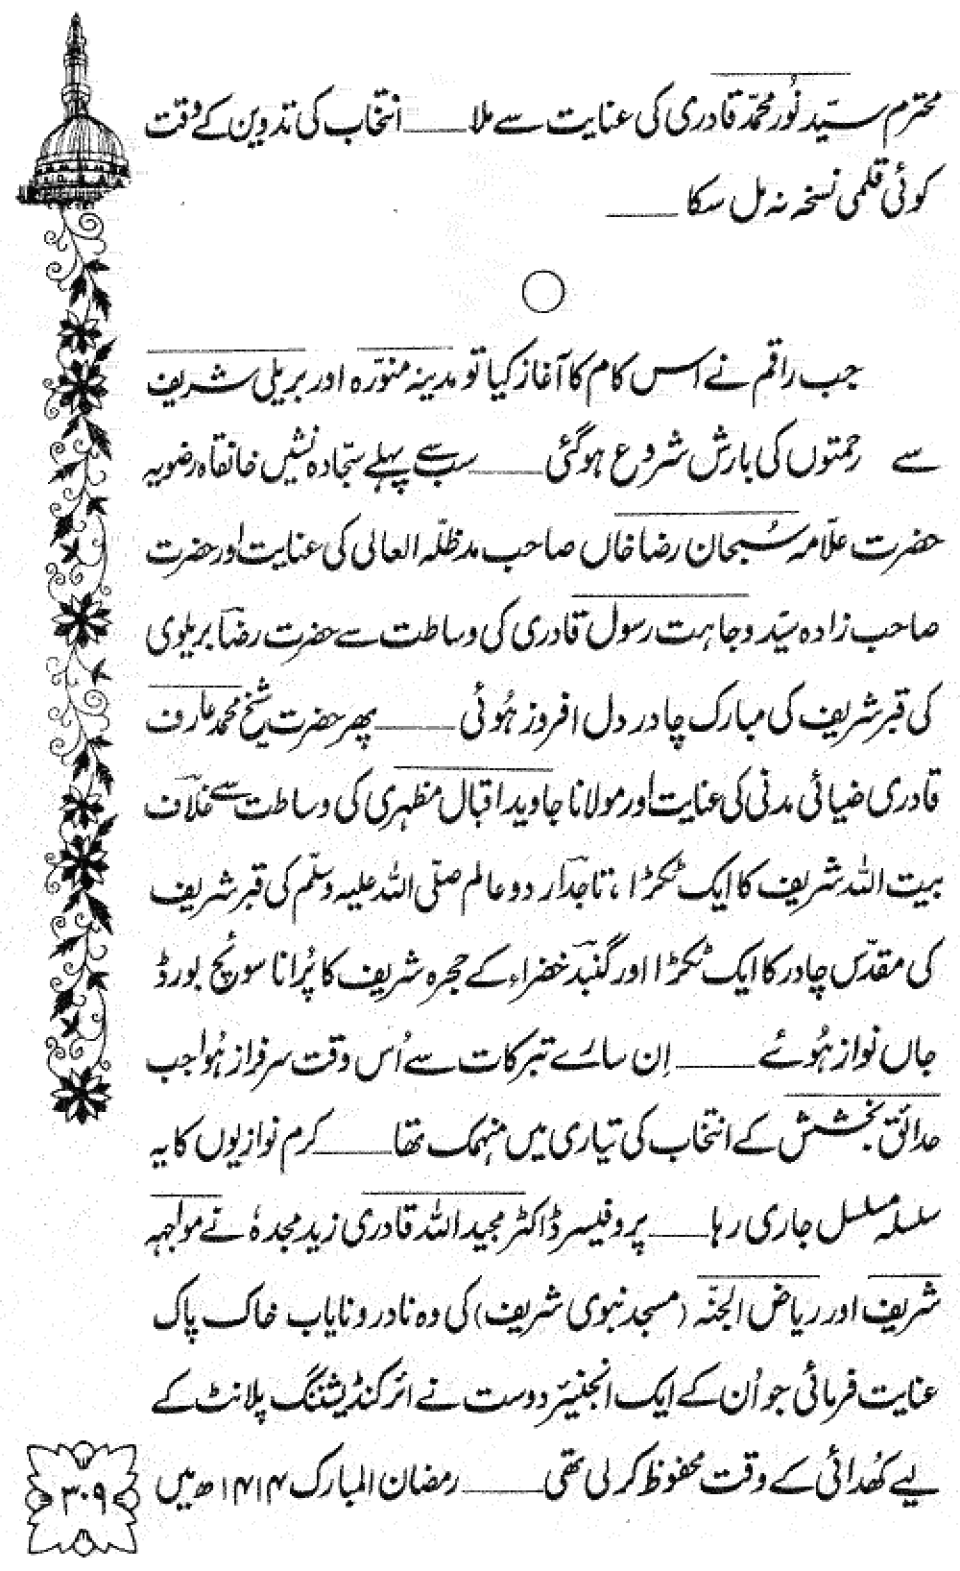 محترم سیّد نُور محمّد قادری کی عنایت سے ملا ـــــ انتخاب کی تدوین کے وقت
کوئی قلمی نسخہ نہ مل سکا ـــــ
جب راقم نے اس کام کا آغاز کیا تو مدینہ منوّرہ اور بریلی شریف
سے رحمتوں کی بارش شروع ہوگئی ـــــ سب سے پہلے سجّادہ نشیں خانقاہ رضویہ
حضرت علّامہ سُبحان رضا خاں صاحب مدظلّہ العالی کی عنایت اور حضرت
صاحب زادہ سیّد وجاہت رسول قادری کی وساطت سے حضرت رضاؔ بریلوی
کی قبر شریف کی مبارک چادر دل افروز ہُوئی ـــــ پھر حضرت شیخ محمد عارف
قادری ضیائی مدنی کی عنایت اور مولانا جاوید اقبال مظہری کی وساطت سے غلاف
بیت اللہ شریف کا ایک ٹکڑا، تاجدار دو عالم صلّی اللہ علیہ وسلّم کی قبر شریف
کی مقدّس چادر کا ایک ٹکڑا اور گنبد خضراء کے حجرہ شریف کا پُرانا سوئچ بورڈ
جاں نواز ہُوئے ـــــ اِن سارے تبرکات سے اُس وقت سرفراز ہُوا جب
حدائق بخشش کے انتخاب کی تیاری میں منہمک تھا ـــــ کرم نوازیوں کا یہ
سلسلہ مسلسل جاری رہا ـــــ پروفیسر ڈاکٹر مجید اللہ قادری زید مجدہٗ نے مواجہہ
شریف اور ریاض الجنّہ (مسجد نبوی شریف) کی وہ نادر و نایاب خاک پاک
عنایت فرمائی جو اُن کے ایک انجنیئر دوست نے ائرکنڈیشننگ پلانٹ کے
لیے کھُدائی کے وقت محفوظ کرلی تھی ـــــ رمضان المبارک ۱۴۱۴ھ میں
۳۰۹